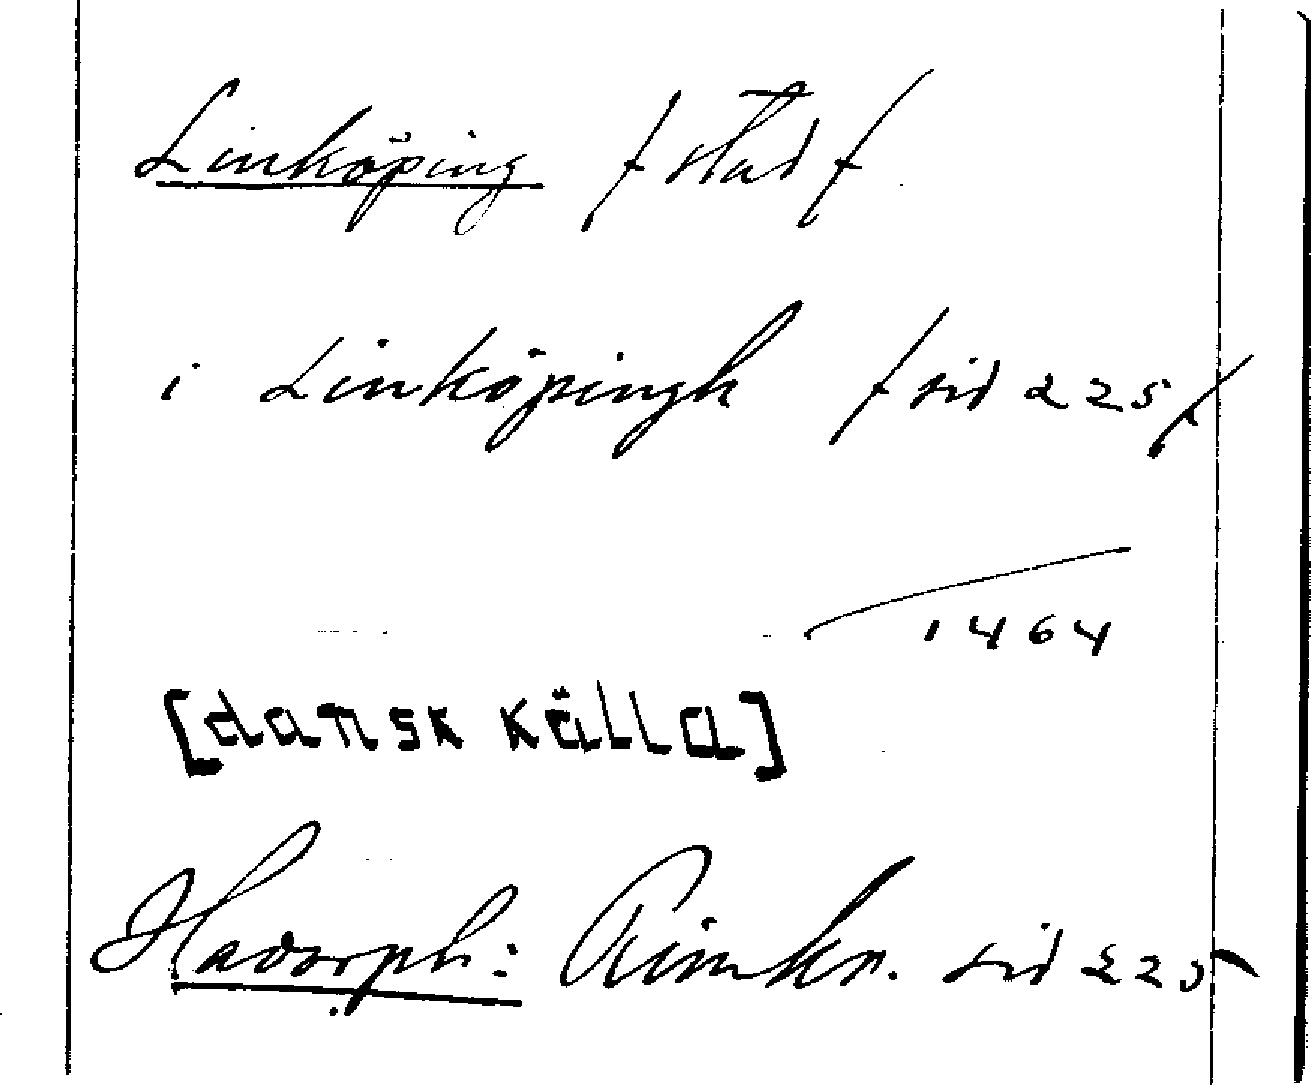 Linköping /stad/
i Linköpingh /sid 225/
1464
[dansk källa]
Hadorph: Rimkr. sid 225